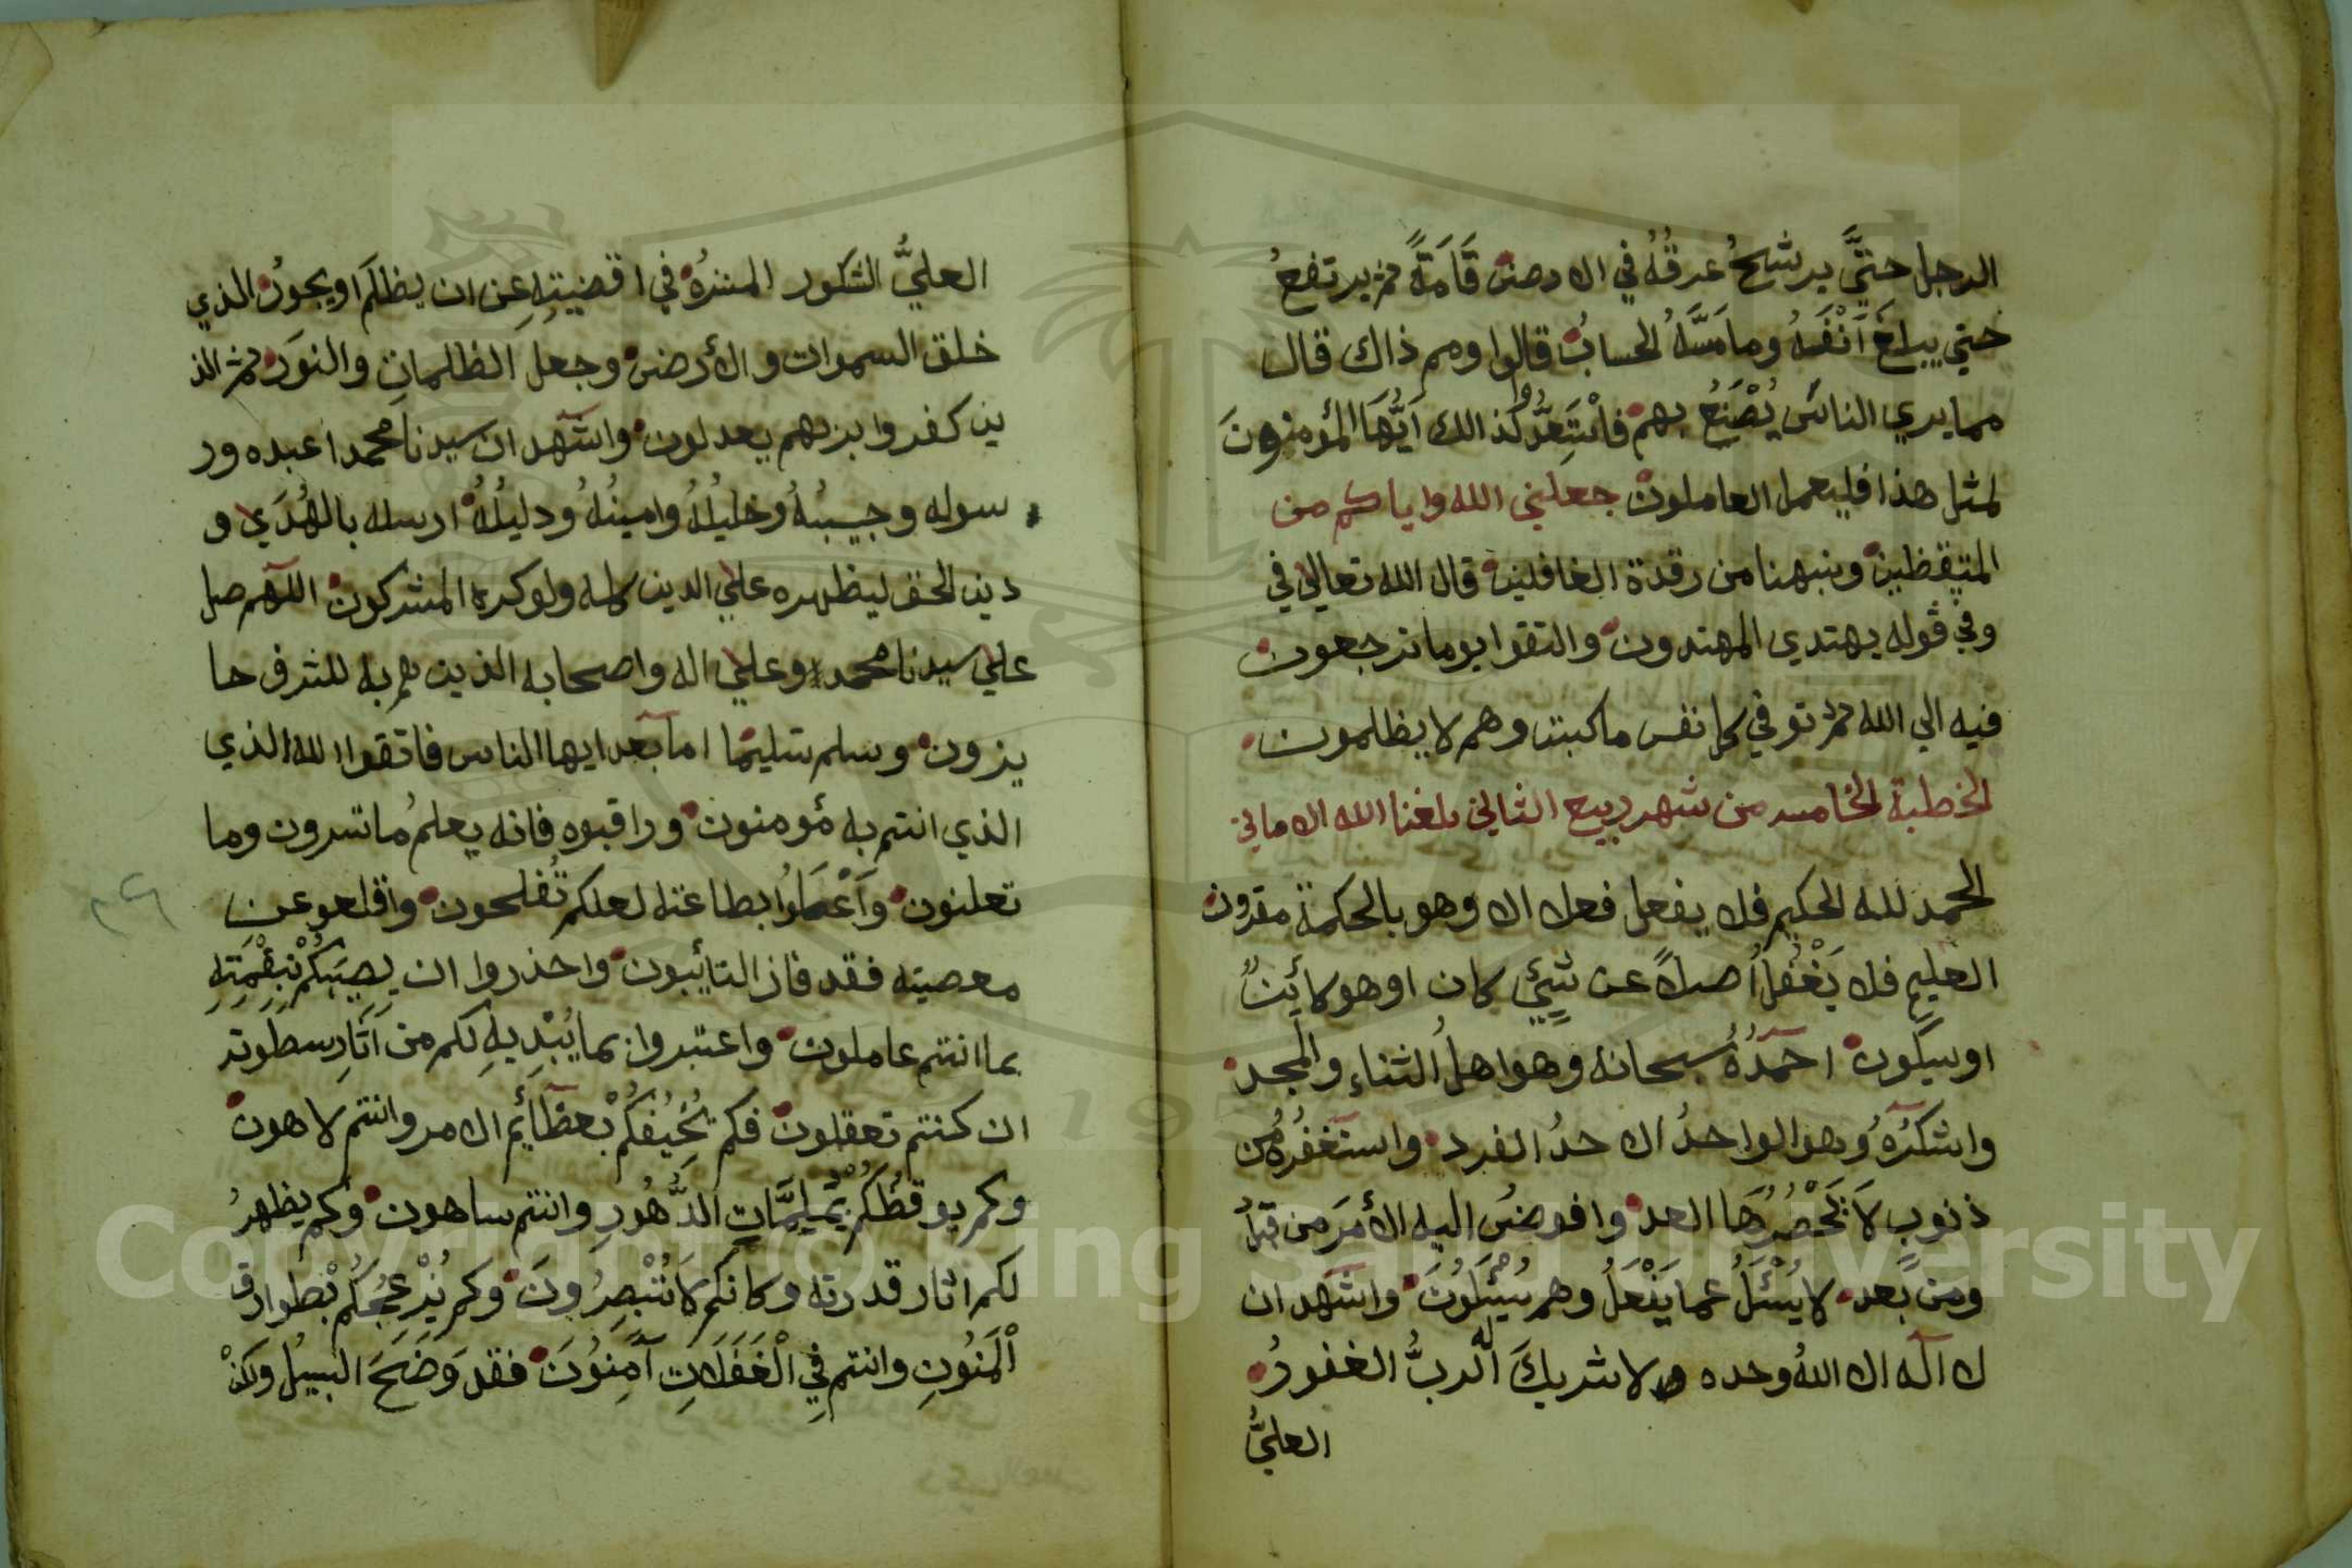 الرجل حتىَّ يرشحُ عرقُهُ في الارض قَامَةً ثم يرتفعُ
حتي يبلغَ اَنْفَهُ وما مَسَّهُ الحسابُ قالوا ومم ذاك قال
مما يري الناسَ يُصْنَعُ بهم فاسْتَعِدُّوا لذالك اَيُّهَا المؤمنونَ
لمثل هذا فليعمل العاملون جعلني الله واياكم من
المتيقظين ونبهنا من رقدة الغافلين قال الله تعالي في
وفي قوله يهتدي المهتدون والتقوا يوما ترجعون
فيه الي الله ثم توفي كل نفس ما كسبت وهم لا يظلمون
الخطبة الخامسه من شهر ربيع الثاني بلغنا الله الاماني
الحمد لله الحكيم فلا يفعل فعلا الا وهو بالحكمة مقرون
العليمِ فلا يَغْفُلُ اصلاً عن شيئٍ كان او هو كائنٌ
او سيكون احمَدُهُ سبحانه وهو اهلُ الثناءِ والمجد
واشكرُهُ وهو الواحدُ الاحدُ الفرد واستغفرُهُ من
ذنوبٍ لاَ يَحْصُرُهَا العد وافوضُ اليه الأمرَ من قبلُ
ومن بَعد لا يُسْئَلُ عما يَفْعَلُ وهم يُسْئَلُونَ واشهد ان
لا اله الا اللهُ وحده لا شريكَ له الربُّ الغفورُ
العليُّ
العليُّ الشكور المنزهُ في اقضيتِهِ عن ان يظلمَ او يجورُ الذي
خلق السموات والأرض وجعل الظلماتِ والنورَ ثم الذ
ين كفروا بربهم يعدلون واشهد ان سيدنا محمدا عبده ور
سوله وحبيبُهُ وخليلُهُ وامينُهُ ودليلُهُ ارسله بالهُدَي و
دين الحق ليظهره علي الدين كله ولو كره المشركون اللهم صل
علي سيدنا محمد وعلي اله واصحابه الذين هم به للشرف حا
يزون وسلم تسليمًا اما بعد ايها الناس فاتقوا الله الذي
الذي انتم به مؤمنون وراقبوه فانه يعلمُ ما تسرون وما
تعلنون وَاَعْمَلوُا بطاعته لعلكم تُفلحون واقلعو عن
معصيته فقد فاز التايئبون واحذروا ان يصيبَكُمْ بنِقْمَتِهِ
بما انتم عاملون واعتبروا بما يُبْدِيهِ لكم من اَثَارِ سطوته
ان كنتم تعقلون فكم يُخَيفُكُمْ بعظَائِم الامر وانتم لاهون
وكم يوقظُكُمْ بمُلِمَّاتِ الدُّهُورِ وانتم ساهون وكم يظهرُ
لكم اثار قدرته وكانكم لاَ تُبْصِرُونَ وكم يُزْعجُكُمْ بطوارق
اْلْمَنُونِ وانتم فِي الْغَفَلاَتِ آمِنوُنَ فقد وَضَحَ السبيلُ ولكنْ
Copyright © King Saud University